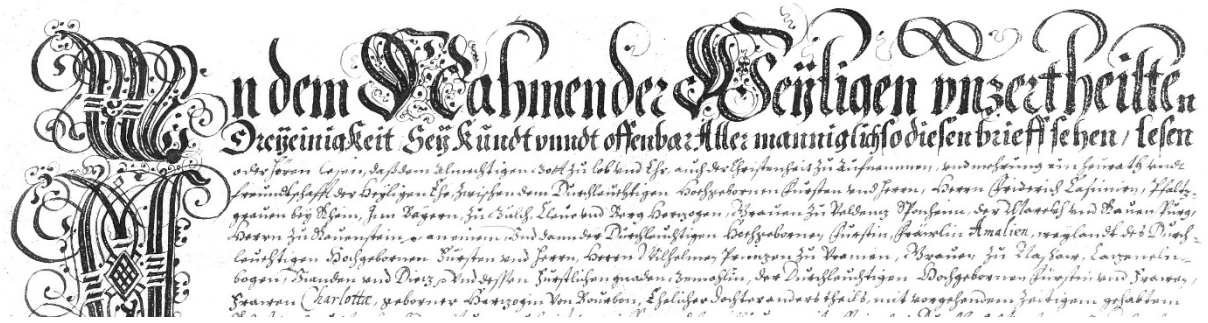 In dem Nahmen der Heÿligen vnzertheilten
Dreÿeinigkeit, Seÿ Kundt vnndt offenbar Aller manniglich so diesen brieff sehen, lesen
oder hören lesen, daß dem Almechtigen Gott zu lob vnd Ehr, auch der Christenheit zu Aufnemmen, vnd mehrung ein heurath vndt
freundtschafft der Heÿligen Ehe, zwischen dem Durchleuchtigen Hochgebornen Fürsten vnd Herrn, Herrn Friderich Casimirn, Pfaltz-
grauen beÿ Rhein, Inn Baÿern, zu Gülch, Cleue vnd Berg Hertzogen, Grauen zu Veldentz Sponheim, der Marckh vnd Rauenspurg,
Herrn zu Rauenstein, an einem, Vnd dann der Durchleuchtigen Hochgebornen Fürstin, Fräwlin Amalien, weÿlandt des Durch-
leuchtigen Hochgebornen Fürsten vnd Herrn, Herrn Wilhelmen Printzen zu Vranien, Grauen zu Naßaw, Catzeneln-
bogen, Vianden vnd Dietz, Vnd dessen Fürstlichen gnaden Gemahlin, der Durchleuchtigen Hochgebornen Fürstin vnd Frawen,
Frawen Charlotte, geborner Hertzogin von Bourbon, Ehelicher dochter anders theils, mit vorgehendem zeitigem gehabtem